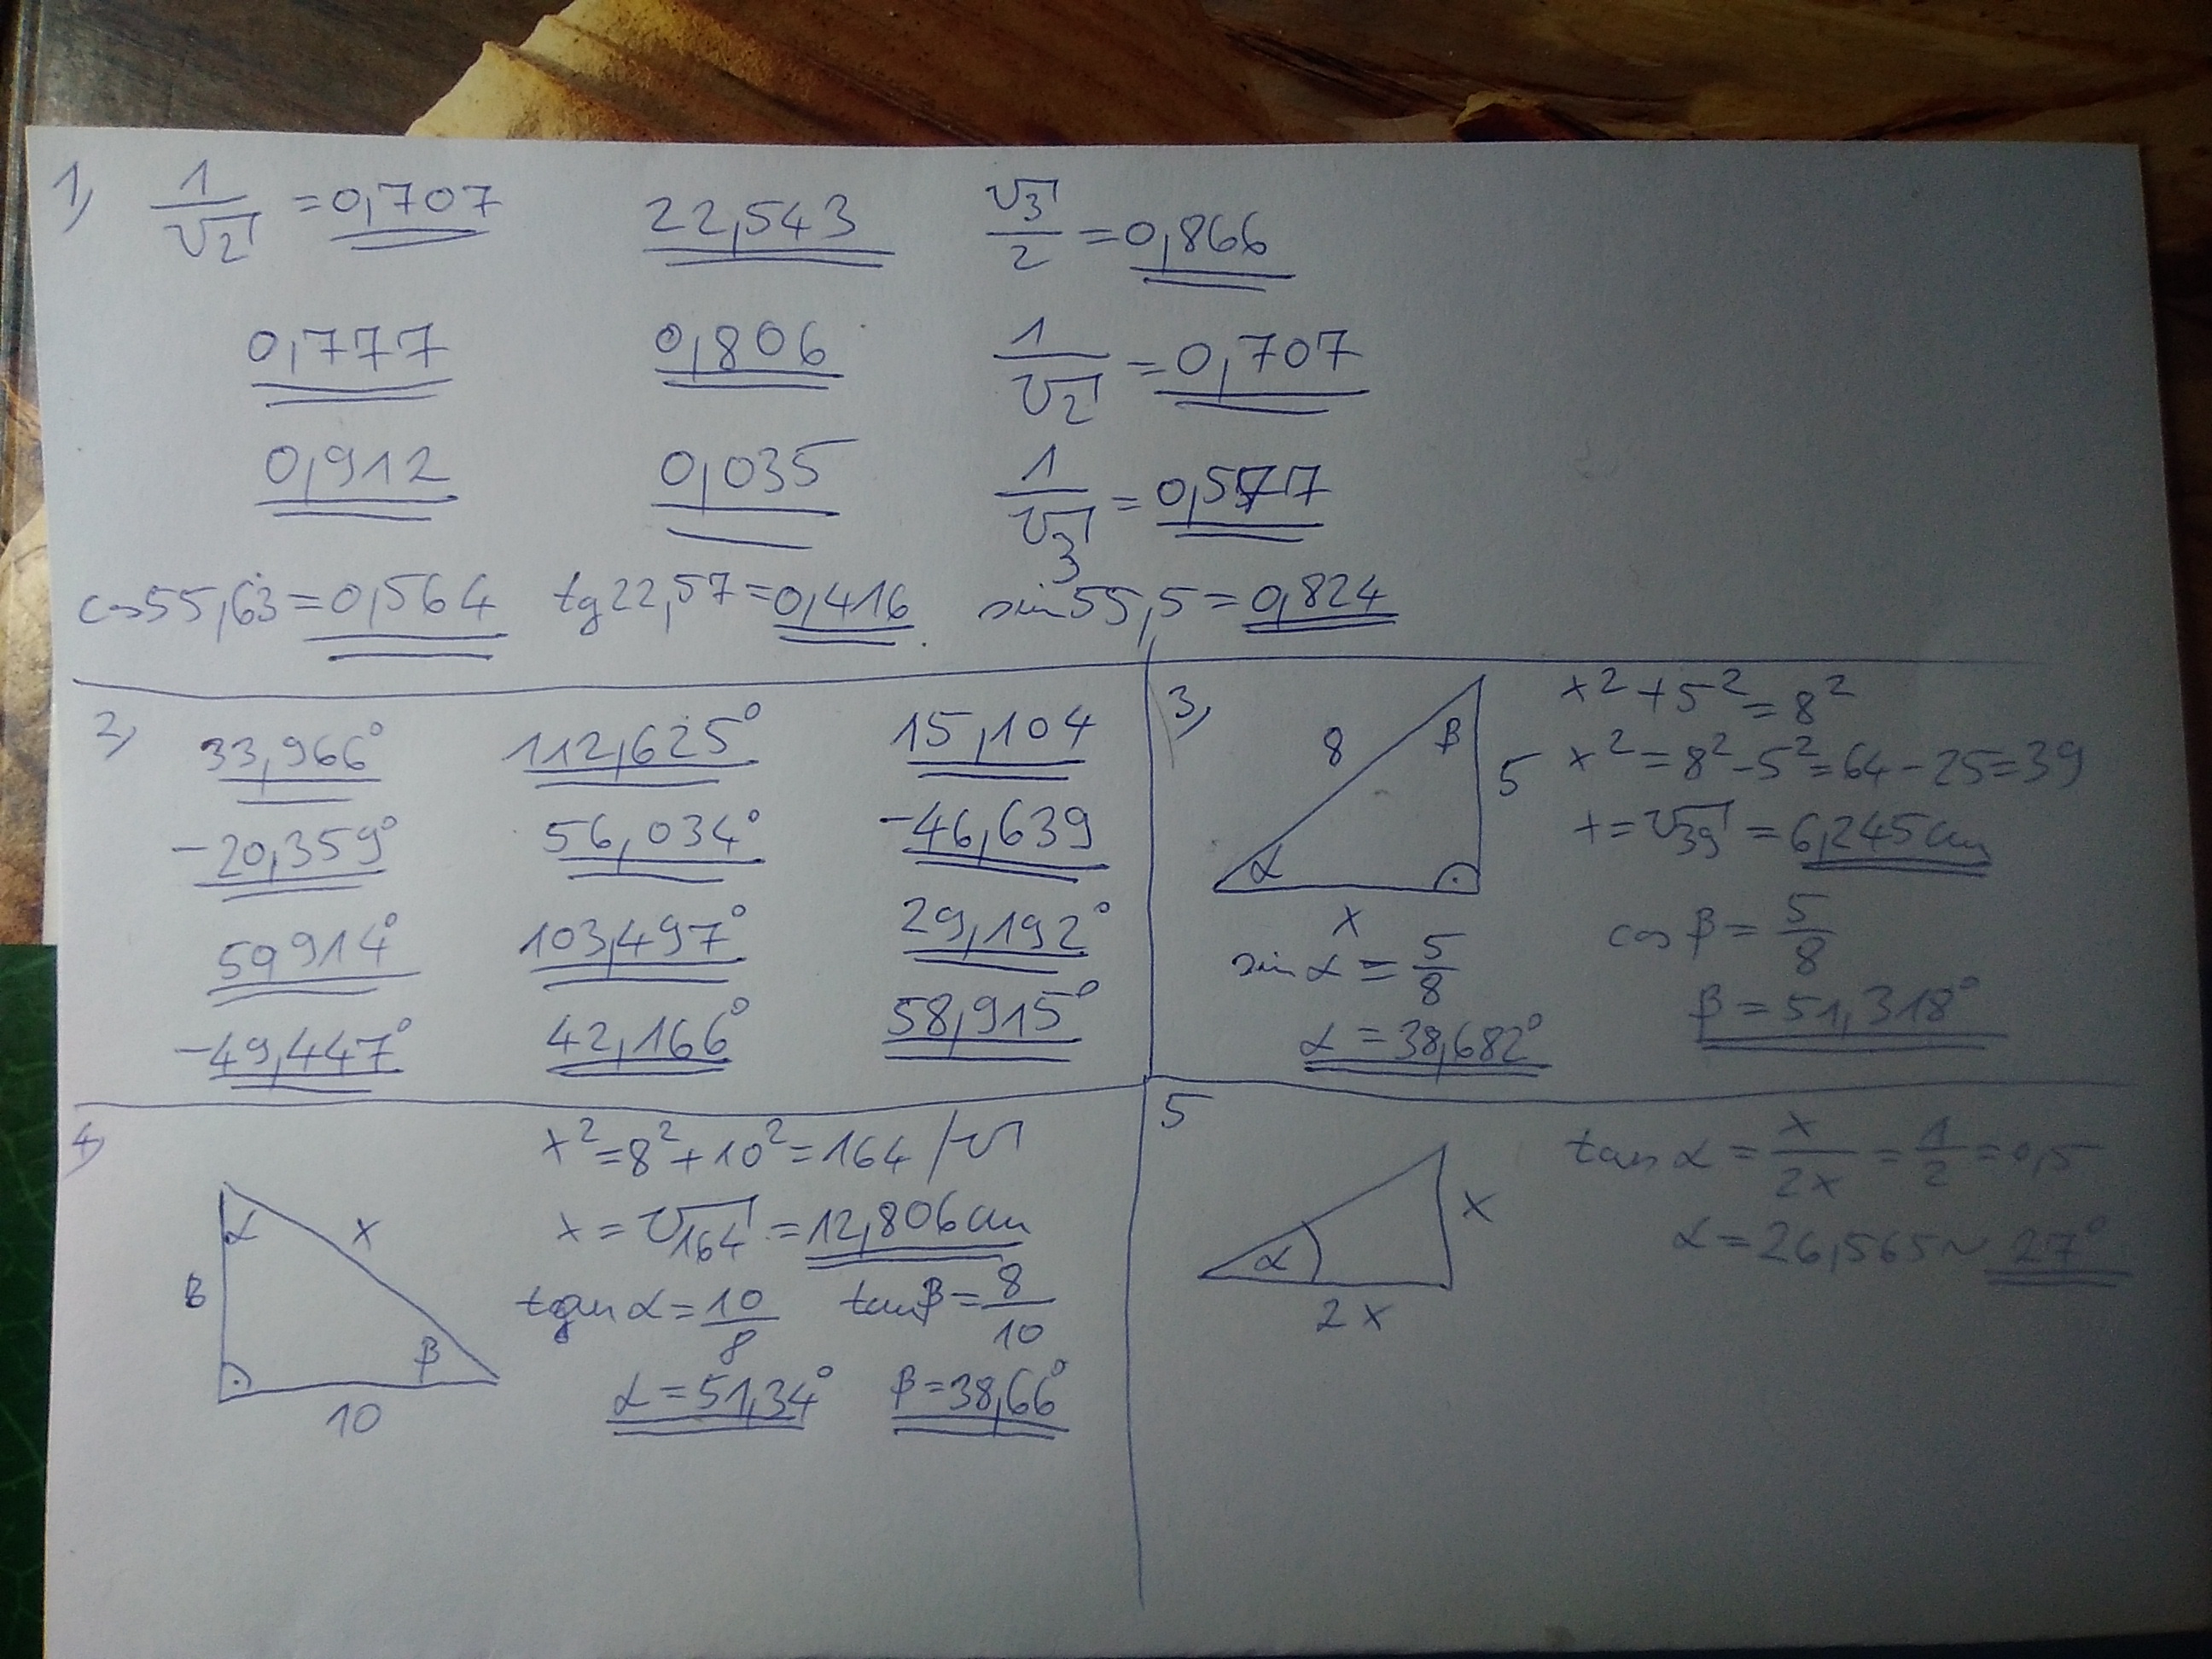 1) 1/√2 = 0,707 22,543 √3/2 = 0,866
0,777 0,806 1/√2 = 0,707
0,912 0,035 1/√3 = 0,577
cos55,63 = 0,564 tg22,57 = 0,416 sin55,5 = 0,824
2) 33,966° 112,625° 15,104
-20,359° 56,034° -46,639
59914° 103,497° 29,192°
-49,447° 42,166° 58,915°
3)
8 β 5
α
x
x² + 5² = 8²
x² = 8² - 5² = 64 - 25 = 39
x = √39 = 6,245cm
sin α = 5/8
α = 38,682°
cos β = 5/8
β = 51,318°
4)
α x
8
β
10
x² = 8² + 10² = 164 /√
x = √164 = 12,806cm
tan α = 10/8 tan β = 8/10
α = 51,34° β = 38,66°
5
α x
2x
tan α = x/2x = 1/2 = 0,5
α = 26,565 ~ 27°